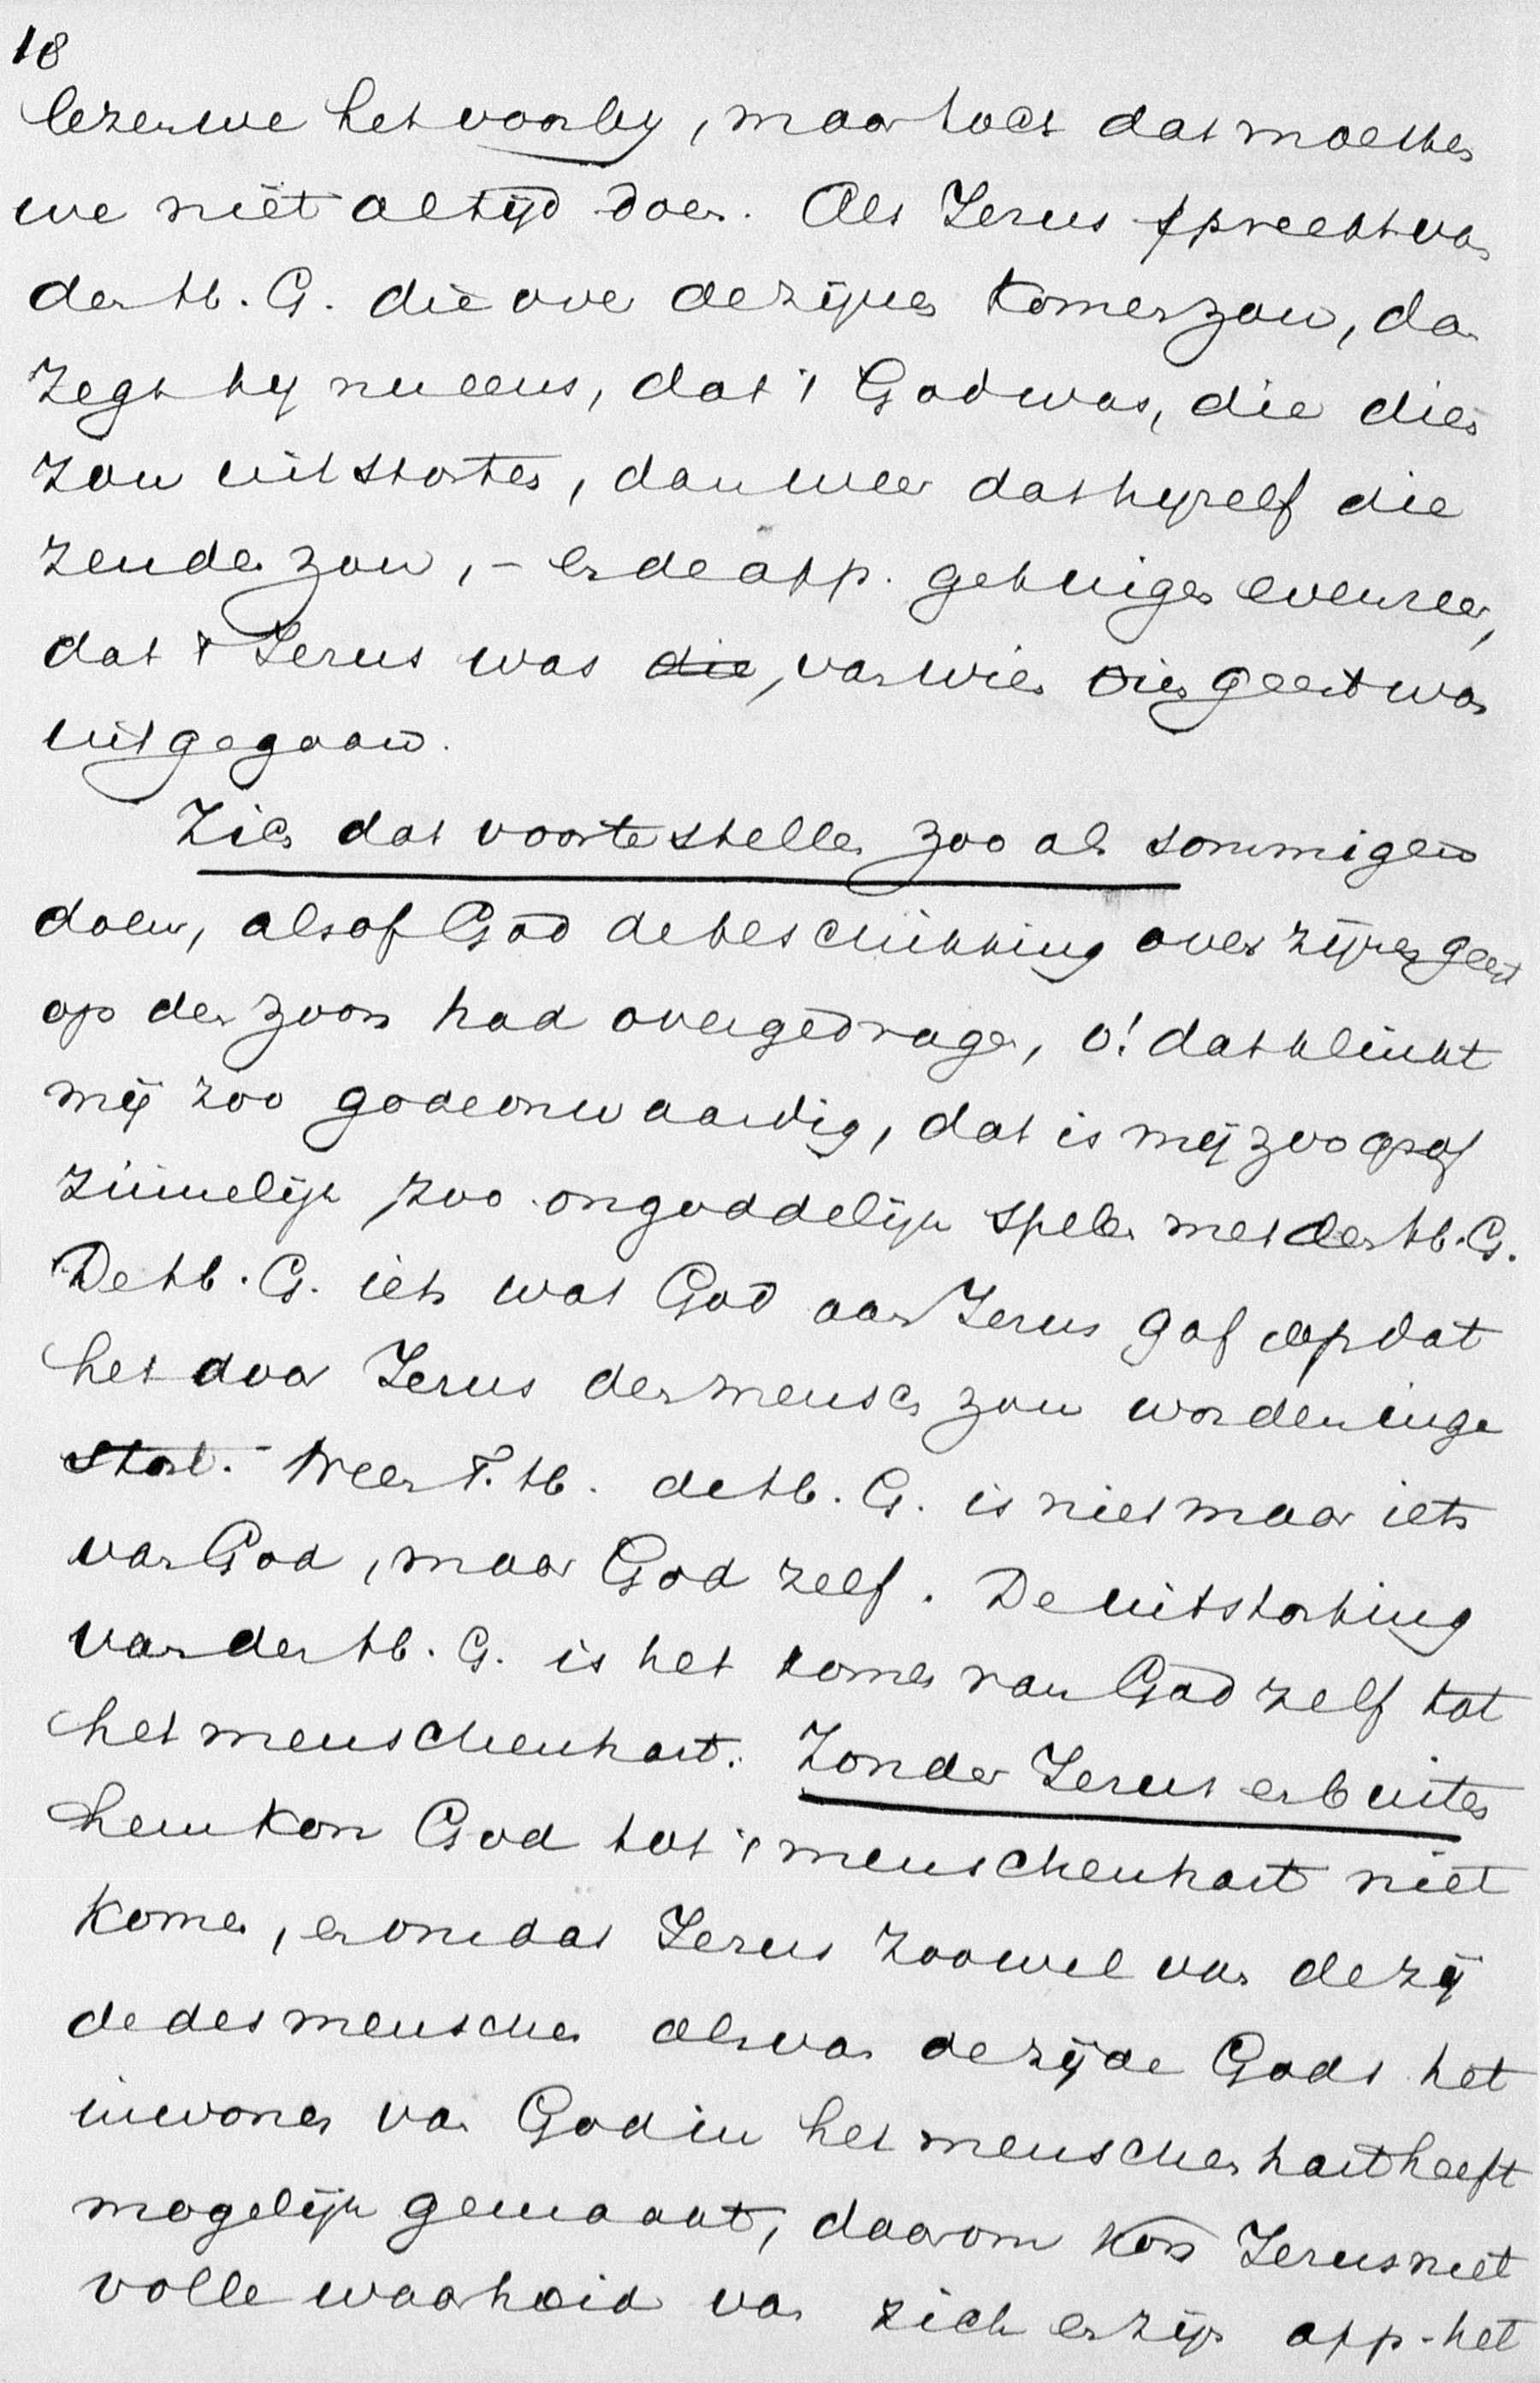 18
lezen we het voorby, maar toch dat moesten
we niet altijd doen. Als Jezus spreekt van
den H. G. die over de zijnen komen zou, dan
zegt hy nu eens, dat 't God was, die dien
zou uitstorten, dan weer dat hyzelf die
zenden zou, – en de app. getuigen evenzeer,
dat 't Jezus was die, van wien dien geest was
uitgegaan.
Zich dat voor te stellen zoo als sommigen
doen, alsof God de beschikking over zijnen geest
op den zoon had overgedragen, o! dat klinkt
mij zoo godeonwaardig, dat is mij zoo grof
zinnelijk zoo ongoddelijk spelen met den H. G.
De H. G. iets wat God aan Jezus gaf opdat
het door Jezus den mensch zou worden inge
stort. Neen T. H. de H. G. is niet maar iets
van God, maar God zelf. De uitstorting
van den H. G. is het komen van God zelf tot
het menschenhart. Zonder Jezus en buiten
hem kon God tot 't menschenhart niet
komen, en omdat Jezus zoowel van de zij
de des menschen als van de zijde Gods het
inwonen van God in het menschenhart heeft
mogelijk gemaakt, daarom kon Jezus met
volle waarheid van zich en zijn app. het